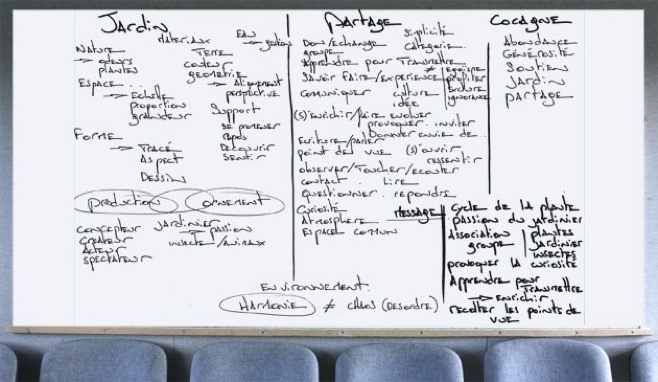 Jardin
Materiaux
Eau
→ gestion
Nature
→ odeurs
plantes
Terre
couleur
geometrie
Espace...
→ Echelle
proportion
grandeur
→ Alignement
perspective
Support
se promener
repos
Decouvrir
sentir
Forme
→ Tracé
Aspect
Dessin
production
ornement
concepteur
createur
Acteur
spectateur
Jardinier
→ passion
insecte/animaux
Partage
Don/Echange
groupe
simplicité
categorie
Apprendre pour Transmettre
≠ egoisme
profiter
exclure
ignorance
Savoir faire/experience
communiquer
culture
idée
(s)'enrichir/faire evoluer
provoquer. inviter
Donner envie de...
Ecriture/parler
point de vue
(s)'ouvrir
ressentir
observer/Toucher/ecouter
contact. Lire
Questionner. repondre
Curiosité
Atmosphere
Espace commun
message
Cocagne
Abondance
Générosité
Soutien
Jardin
partage
cycle de la plante
passion du jardinier
Association
groupe
plantes
jardinier
insectes
provoquer la curiosité
Apprendre pour
Transmettre
→ Enrichir
recolter les points de
vue
Environnement
Harmonie ≠ chaos (Desordre)